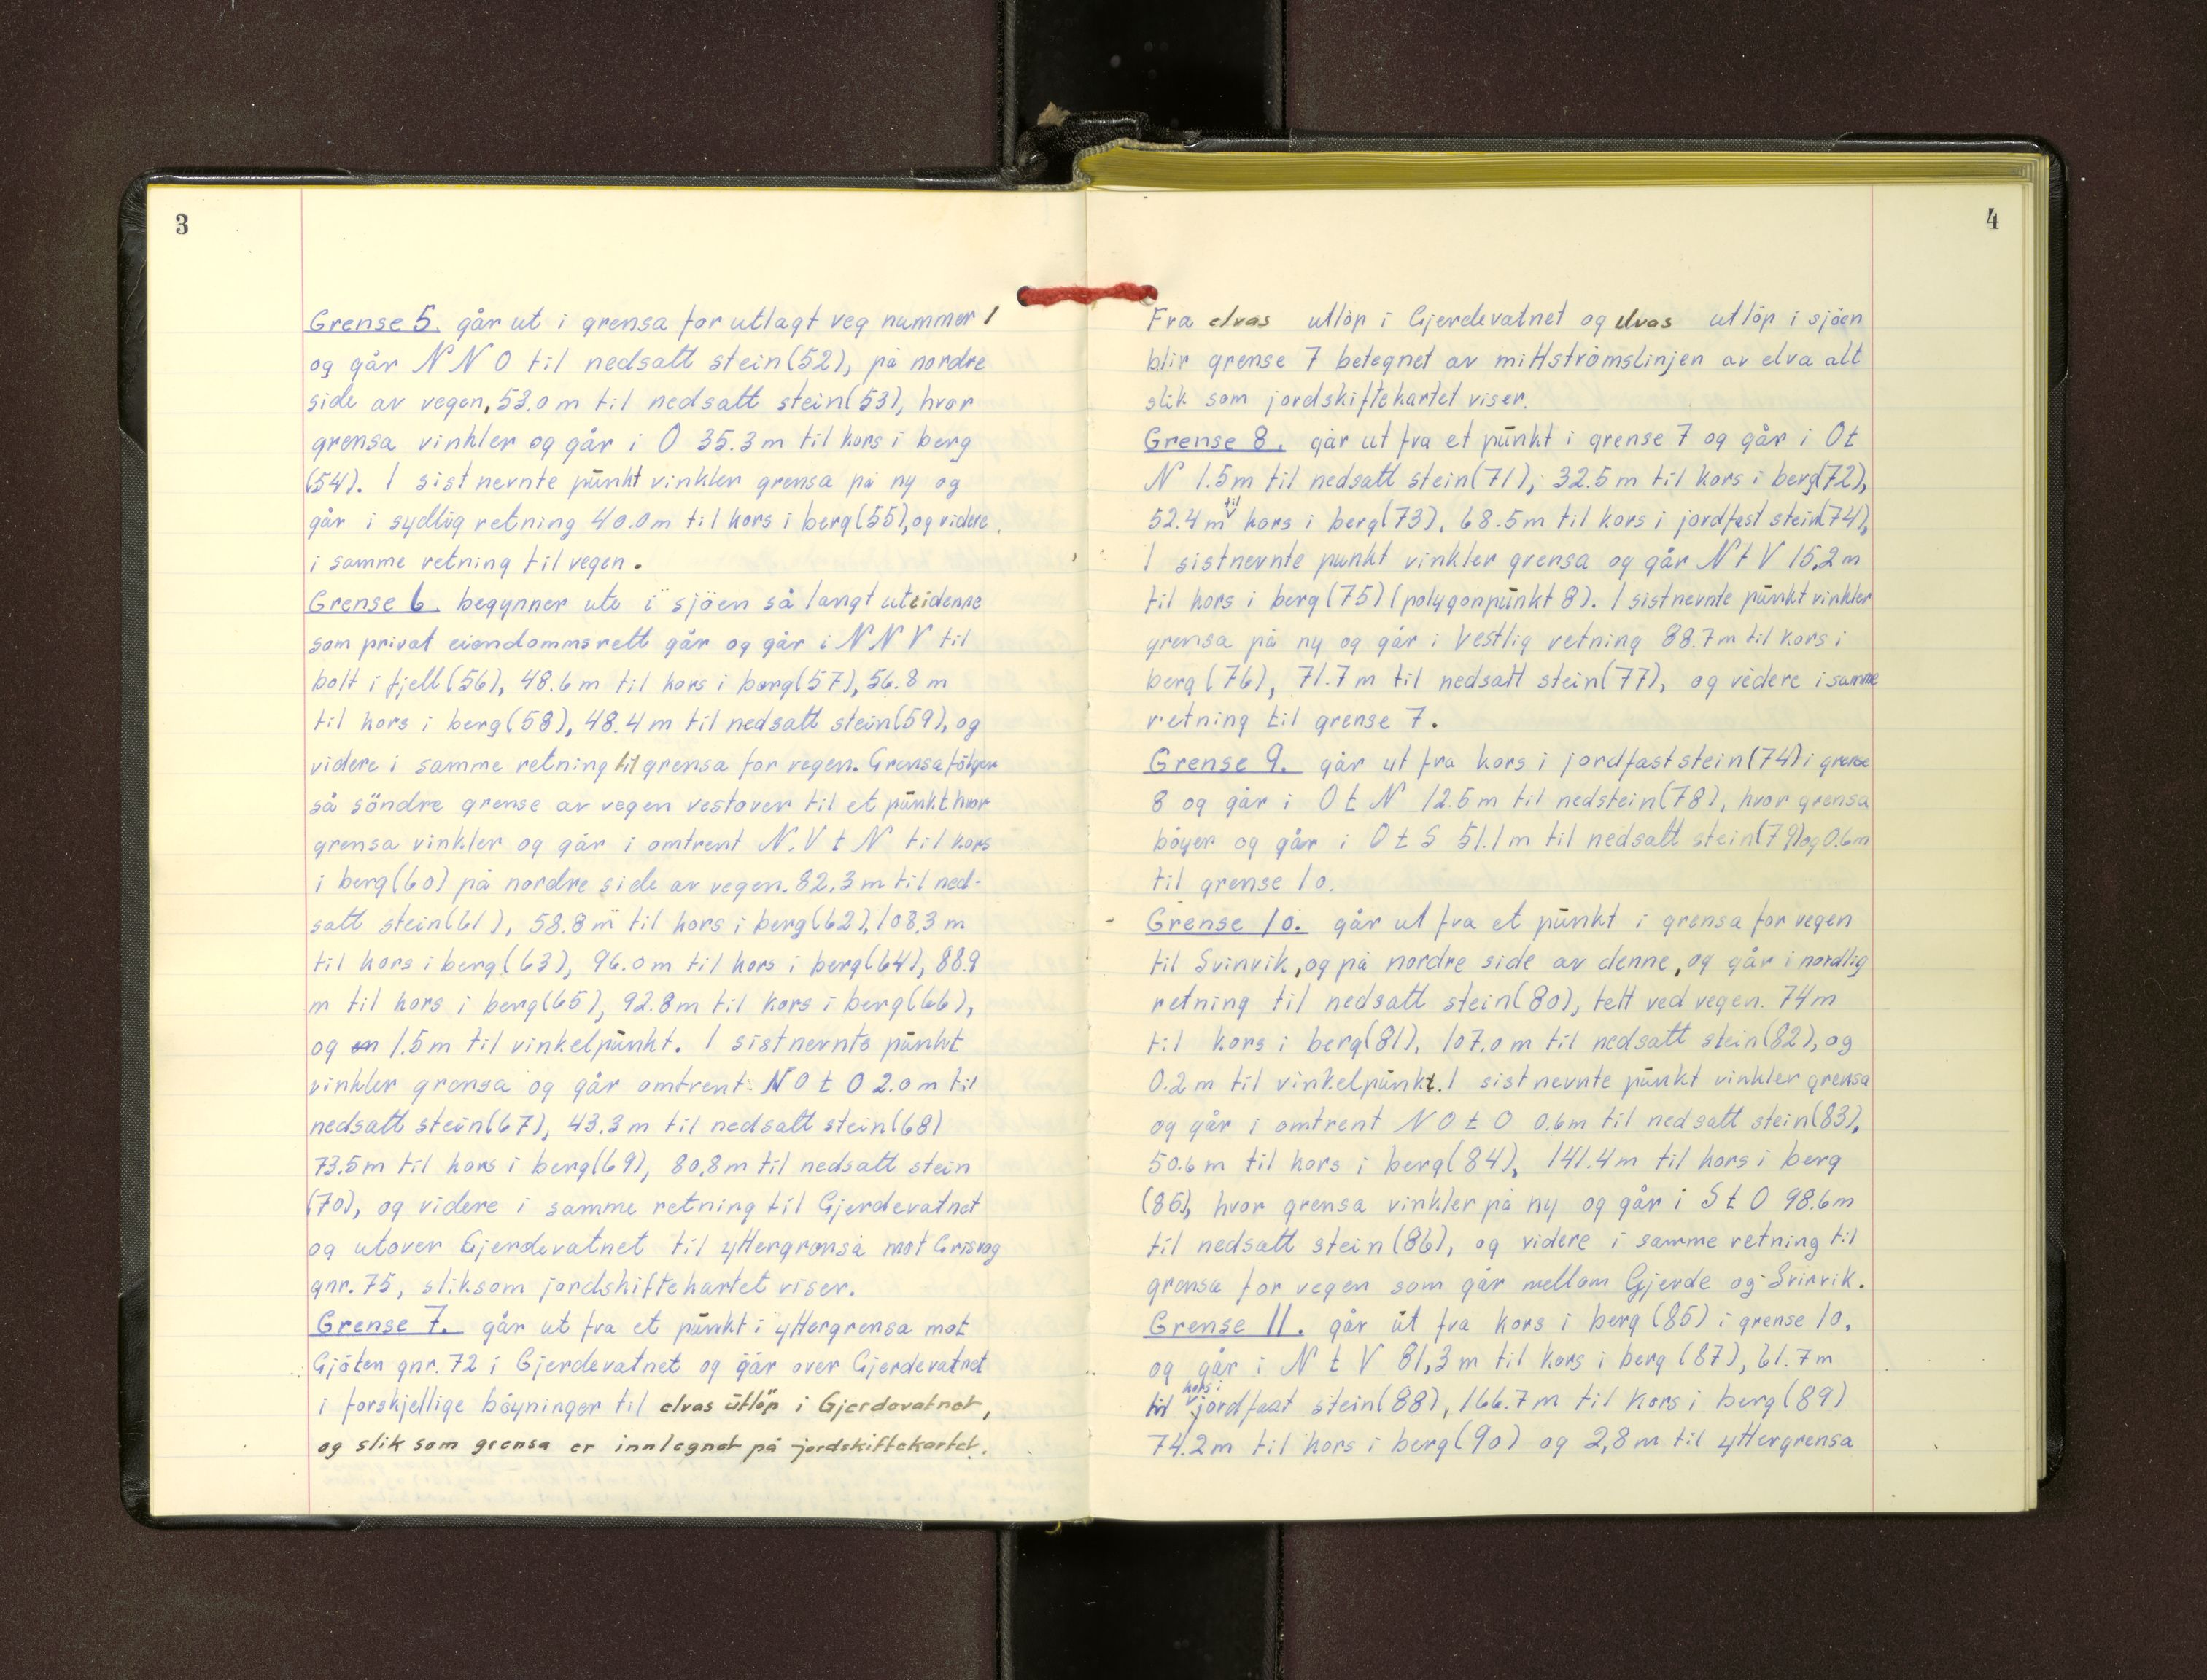 3
Grense 5. går ut i grensa for utlagt veg nummer 1
og går N N O til nedsatt stein (52), på nordre
side av vegen, 53.0 m til nedsatt stein (53), hvor
grensa vinkler og går i O 35.3 m til kors i berg
(54). I sist nevnte punkt vinkler grensa på ny og
går i sydlig retning 40.0 m til kors i berg (55), og videre
i samme retning til vegen.
Grense 6 begynner ute i sjöen så langt ute i denne
som privat eiendommsrett går og går i N N V til
bolt i fjell (56), 48.6 m til kors i berg (57), 56.8 m
til kors i berg (58), 48.4 m til nedsatt stein (59), og
videre i samme retning til grensa for vegen. Grensa fölger
så söndre grense av vegen vestover til et punkt hvor
grensa vinkler og går i omtrent N.V t N til kors
i berg (60) på nordre side av vegen. 82,3 m til ned-
satt stein (61), 58.8 m til kors i berg (62), 108.3 m
til kors i berg (63), 96.0 m til kors i berg (64), 88.9
m til kors i berg (65), 92.8 m til kors i berg (66),
og 1.5 m til vinkelpunkt. I sist nevnte punkt
vinkler grensa og går omtrent N O t O 2.0 m til
nedsatt stein (67), 43.3 m til nedsatt stein (68)
73.5 m til kors i berg (69), 80,8 m til nedsatt stein
(70), og videre i samme retning til Gjerdevatnet
og utover Gjerdevatnet til yttergrensa mot
gnr. 75, slik som jordskiftekartet viser.
Grense 7. går ut fra et punkt i yttergrensa mot
Gjöten gnr. 72 i Gjerdevatnet og går over Gjerdevatnet
i forskjellige böyninger til elvas utlöp i Gjerdevatnet,
og slik som grensa er innlegnet på jordskiftekartet.
4
Fra elvas utlöp i Gjerdevatnet og elvas utlöp i sjöen
blir grense 7 betegnet av mittströmslinjen av elva alt
slik som jordskiftekartet viser.
Grense 8. går ut fra et punkt i grense 7 og går i O t
N 1.5 m til nedsatt stein (71), 32.5 m til kors i berg (72),
52.4 m til kors i berg (73), 68.5 m til kors i jordfast stein (74),
I sistnevnte punkt vinkler grensa og går N t V 15,2 m
til kors i berg (75) (polygonpunkt 8). I sistnevnte punkt vinkler
grensa på ny og går i Vestlig retning 88.7 m til kors i
berg (76), 71.7 m til nedsatt stein (77), og videre i samme
retning til grense 7.
Grense 9. går ut fra kors i jordfast stein (74) i grense
8 og går i O t N 12.5 m til nedstein (78), hvor grensa
böyer og går i O t S 51.1 m til nedsatt stein (79) og 0.6 m
til grense 10.
Grense 10. går ut fra et punkt i grensa for vegen
til Svinvik, og på nordre side av denne, og går i nordlig
retning til nedsatt stein (80), tett ved vegen. 74 m
til kors i berg (81), 107.0 m til nedsatt stein (82), og
0.2 m til vinkelpunkt. I sist nevnte punkt vinkler grensa
og går i omtrent N O t O 0.6 m til nedsatt stein (83),
50.6 m til kors i berg (84), 141.4 m til kors i berg
(85), hvor grensa vinkler på ny og går i S t O 98.6 m
til nedsatt stein (86), og videre i samme retning til
grensa for vegen som går mellom Gjerde og Svinvik.
Grense 11. går ut fra kors i berg (85) i grense 10,
og går i N t V 81,3 m til kors i berg (87), 61.7 m
til kors i jordfast stein (88), 166.7 m til kors i berg (89)
74.2 m til kors i berg (90) og 2,8 m til yttergrensa